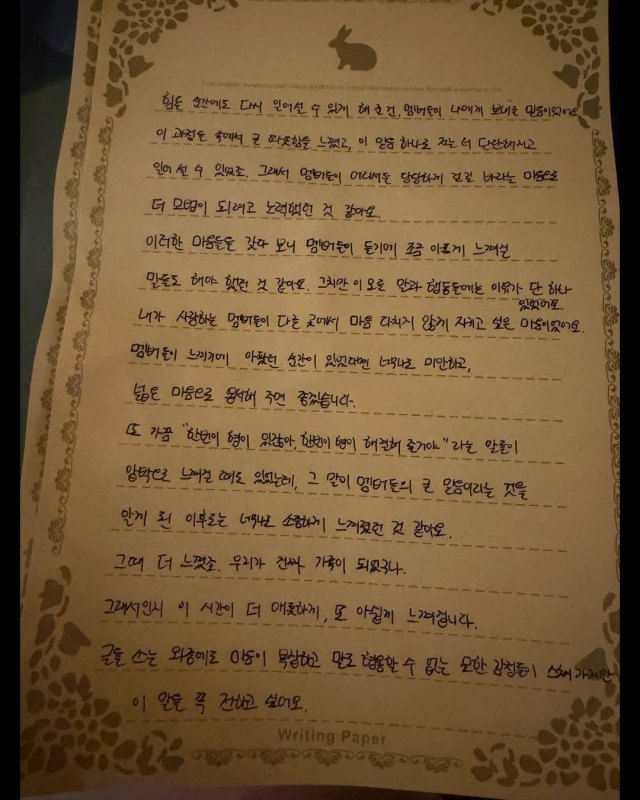 힘든 순간에도 다시 일어설 수 있게 해 준 건, 멤버들이 나에게 보내준 믿음이었어요
이 과정들 속에서 큰 따뜻함을 느꼈고, 이 믿음 하나로 저는 더 단단해지고
일어설 수 있었죠. 그래서 멤버들이 어디서든 당당하게 걷길 바라는 마음으로
더 모범이 되려고 노력했던 것 같아요.
이러한 마음들을 갖다 보니 멤버들이 듣기에 조금 아프게 느껴질
말들도 해야 했던 것 같아요. 그치만 이 모든 말과 행동들에는 이유가 단 하나
있었어요.
내가 사랑하는 멤버들이 다른 곳에서 마음 다치지 않게 지키고 싶은 마음이었어요.
멤버들이 느끼기에 아팠던 순간이 있었다면 너무나로 미안하고,
넓은 마음으로 용서해 주면 좋겠습니다.
또 가끔 "한빈이 형이 있잖아, 한빈이 형이 해결해 줄거야" 라는 말들이
압박으로 느껴질 때도 있었는데, 그 말이 멤버들의 큰 믿음이라는 것을
알게 된 이후로는 너무나로 소중하게 느껴졌던 것 같아요.
그때 더 느꼈죠. 우리가 진짜 가족이 되었구나.
그래서인지 이 시간이 더 애틋하게, 또 아쉽게 느껴집니다.
글을 쓰는 와중에도 마음이 복잡하고 말로 형용할 수 없는 묘한 감정들이 지만
이 말을 꼭 전하고 싶어요.
Writing Paper